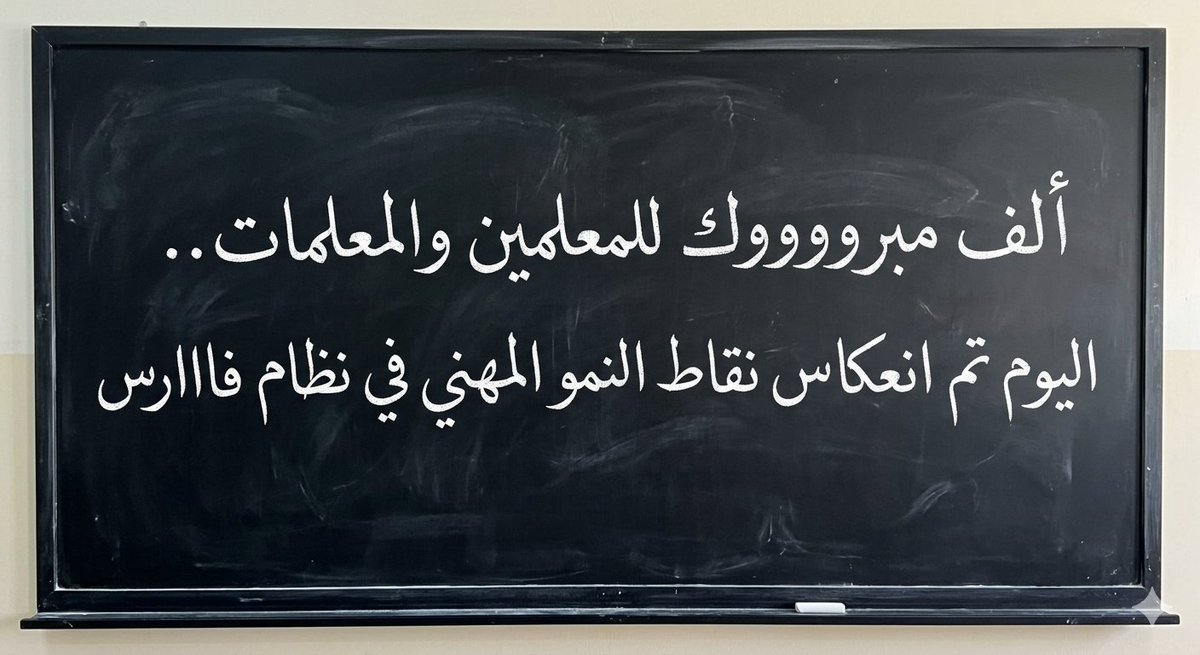 ألف مبرووووك للمعلمين والمعلمات..
اليوم تم انعكاس نقاط النمو المهني في نظام فاااارس